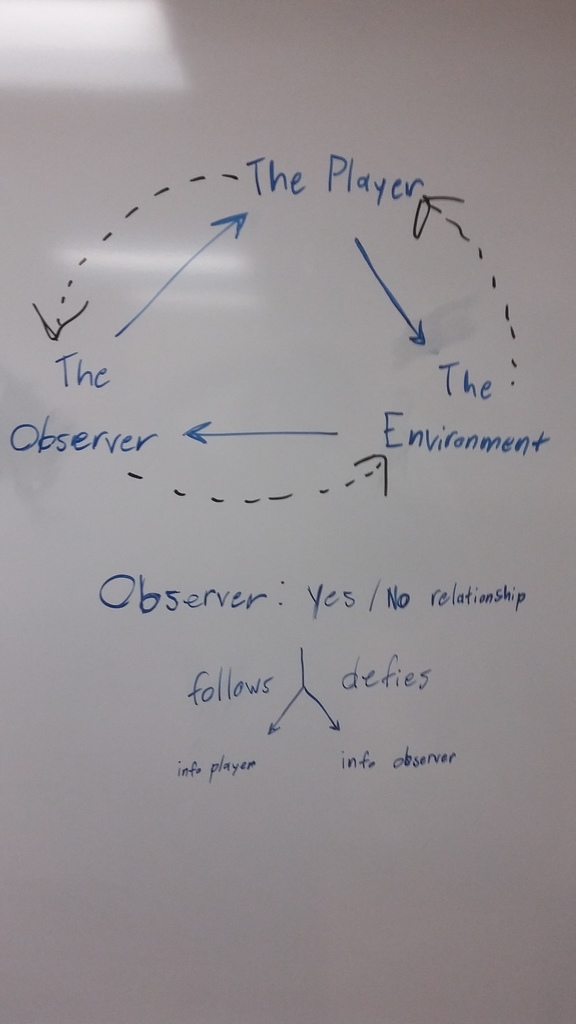 The Player
The
Observer
The
Environment
Observer: Yes / No relationship
follows defies
info player info observer